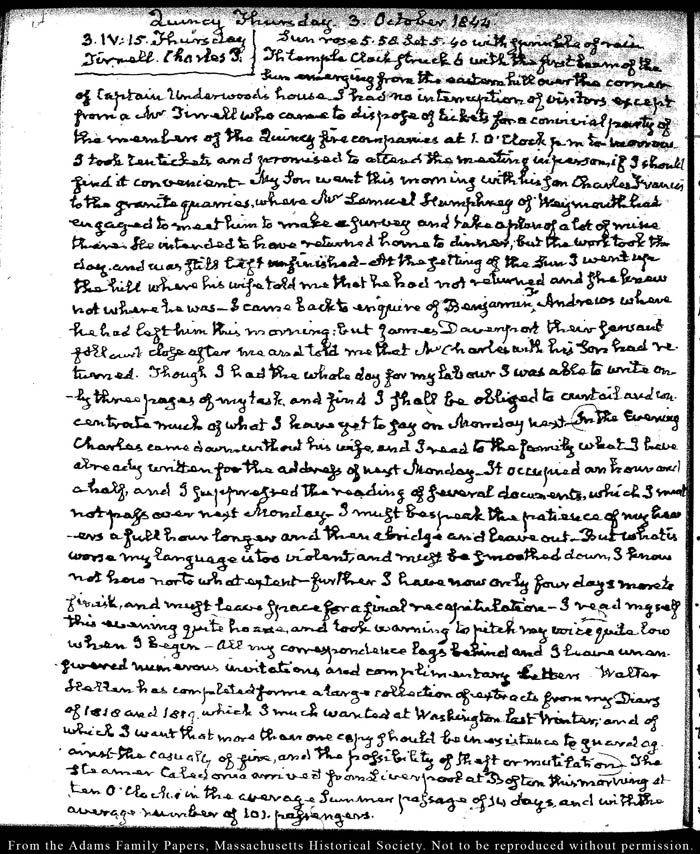 Quincy Thursday 3. October 1844
3. IV:15. Thursday Sun rose 5.58. Set 5.40 with sprinkle of rain
Tirrell. Charles P. Th temple Clock struck 6 with the first beam of the
Sun emerging from the eastern hill over the corner
of Captain Underwood's house. I had no interruption of visitors except
from a Mr Tirrell who came to dispose of tickets for a convivial party of
the members of the Quincy fire companies at 1. O'Clock p.m to-morrow
I took ten tickets and promised to attend the meeting in person, if I should
find it convenient- My Son went this morning with his son Charles Francis
to the granite quarries, where Mr Lemuel Humphrey of Weymouth had
engaged to meet him to make a survey and take a plan of a lot of mine
there. He intended to have returned home to dinner, but the work took the
day, and was still left unfinished- At the setting of the Sun I went up
the hill where his wife told me that he had not returned and she knew
not where he was- I came back to enquire of Benjamin F. Andrews where
he had left him this morning; but James Davenport their servant
follow'd close after me and told me that Mr Charles with his Son had re-
turned. Though I had the whole day for my labour I was able to write on-
-ly three pages of my task, and find I shall be obliged to curtail and con-
centrate much of what I have yet to say on Monday next- In the Evening
Charles came down without his wife, and I read to the family what I have
already written for the address of next Monday- It occupied an hour and
a half, and I suppressed the reading of several documents, which I must
not pass over next Monday- I must bespeak the patience of my hear-
-ers a full hour longer and then abridge and leave out- But what is
worse my language is too violent, and must be smoothed down, I know
not how nor to what extent- further I have now only four days more to
finish, and must leave space for a final recapitulation- I read myself
this evening quite hoarse, and took warning to pitch my voice quite low
when I begin- All my correspondence lags behind and I leave unan-
swered numerous invitations and complimentary Letters. Walter
Hellen has completed for me a large collection of extracts from my Diary
of 1818 and 1819. which I much wanted at Washington last Winter; and of
which I want that more than one copy should be in existence to guard ag-
ainst the casualty of fire, and the possibility of theft or mutilation. The
steamer Caledonia arrived from Liverpool at Boston this morning at
ten O'Clock; in the average Summer passage of 14 days, and with the
average number of 101. passengers.
From the Adams Family Papers, Massachusetts Historical Society. Not to be reproduced without permission.